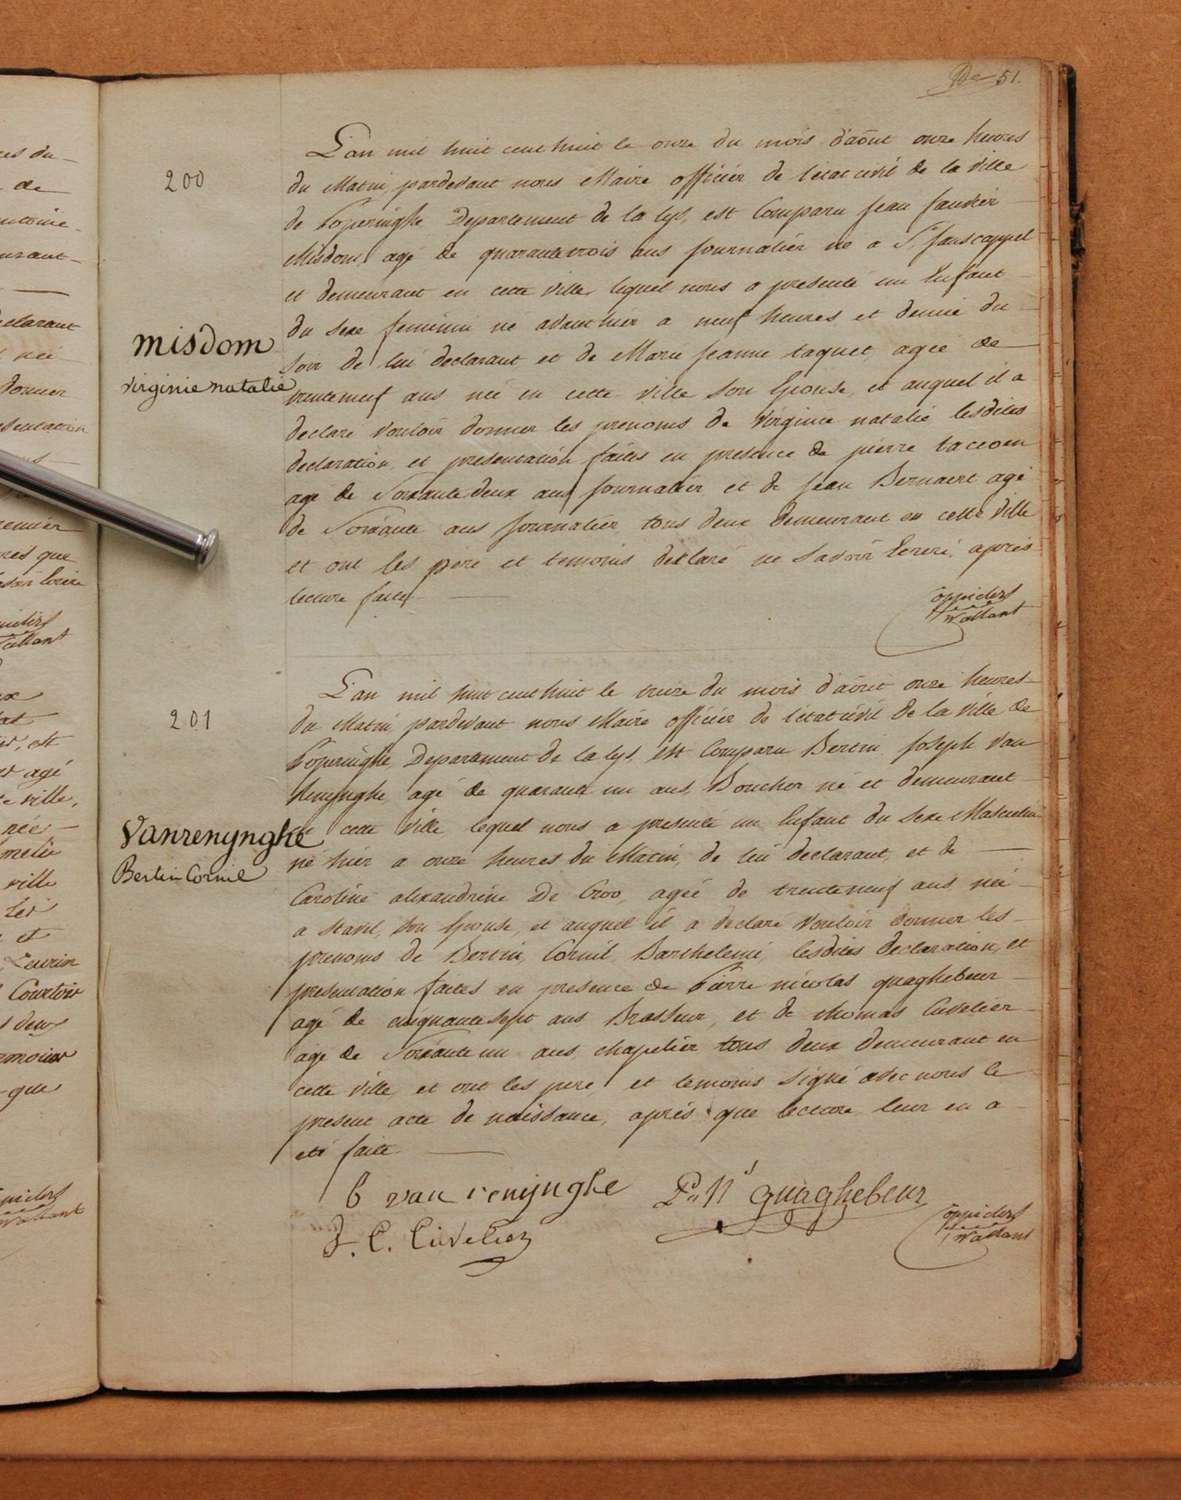 51.
200
misdom
Virginie natalie
L'an mil huit cent huit le onze du mois d'aôut onze heures
du Matin, pardevant nous Maire officier de l'état civil de la ville
de Poperinghe Departement de la Lys, est Comparu Jean
Misdom, agé de quarantetrois ans journalier né a St Janscappel
et demeurant en cette ville, lequel nous a presenté un Enfant
du sexe feminin né avanthier a neuf heures et demie du
soir de lui declarant et de Marie Jeanne taquet, agée de
trenteneuf ans née en cette ville son Epouse, et auquel il a
declaré vouloir donner les prenoms de Virginie natalie lesdites
declaration et presentation faites en presence de pierre
agé de Soixantedeux ans journalier et de Jean Bernaert agé
de Soixante ans journalier, tous deux demeurant en cette ville
et ont les pere et temoins declaré ne savoir Ecrire, après
lecture faite
201
Vanrenynghe
Bertin Cornil
L'an mil huit cent huit le treize du mois d'aôut onze heures
du Matin pardevant nous Maire officier de l'état civil de la ville de
Poperinghe Departement de la Lys, est Comparu Bertin Joseph Van
Renynghe, agé de quarante un ans, Boucher né et demeurant
en cette ville lequel nous a presenté un Enfant du sexe Masculin
né hier a onze heures du Matin, de lui declarant, et de
Caroline alexandrine De Croo, agée de trenteneuf ans née
a Stavel, son Epouse, et auquel il a declaré vouloir donner les
prenoms de Bertin, Cornil, Barthelemi, lesdites declaration, et
presentation faites en presence de Pierre nicolas quaghebeur
agé de cinquantesept ans Brasseur, et de thomas Cuvelier
agé de Soixante un ans, chapelier tous deux demeurant en
cette ville, et ont les pere, et temoins signé avec nous le
present acte de naissance, après que lecture leur en a
eté faite
b van renijnghe
P: N: quaghebeur
J. C. Cuvelier